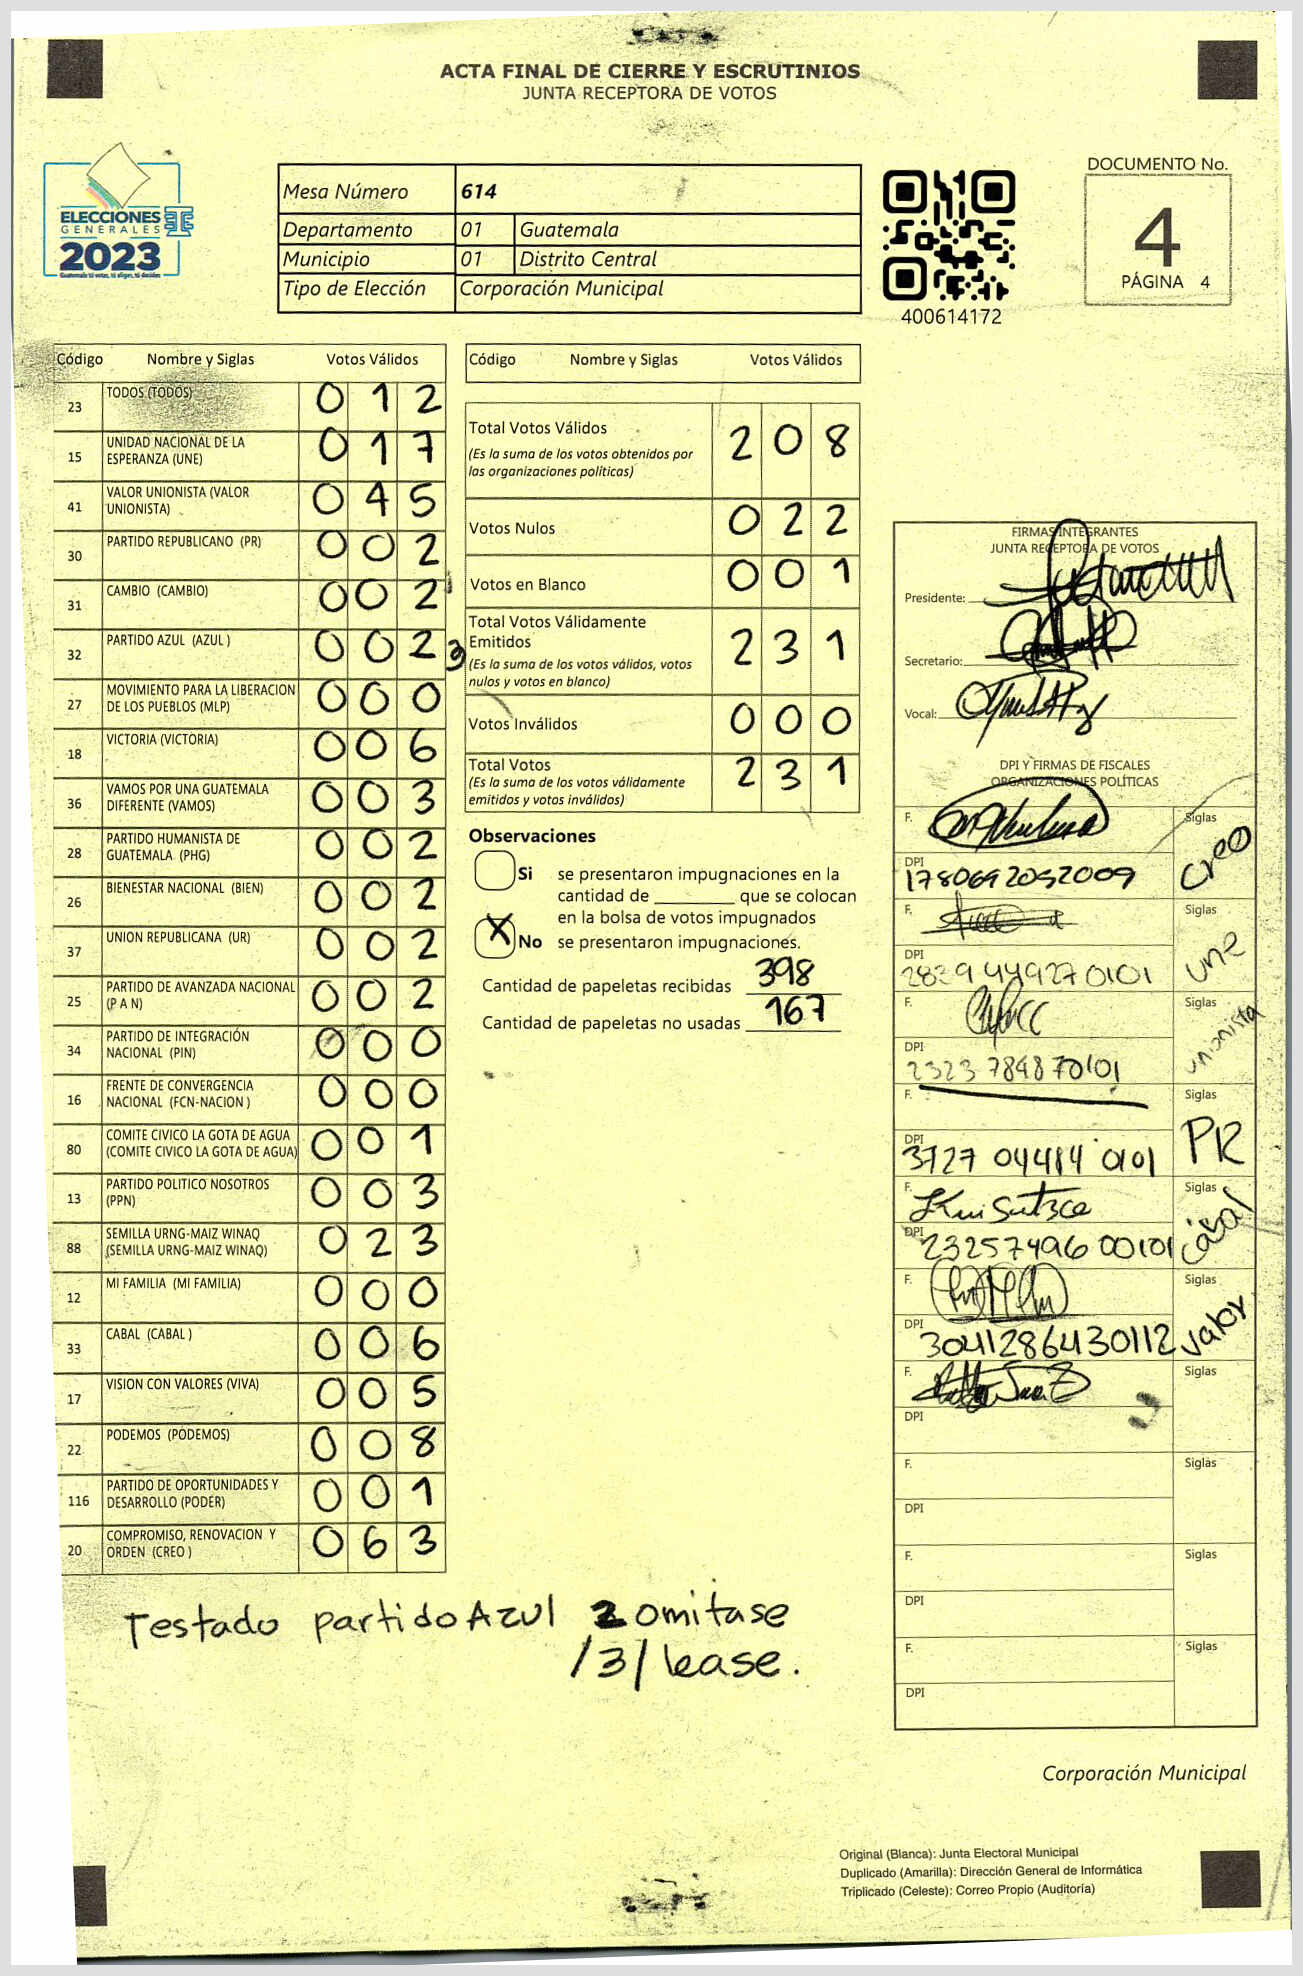 ACTA FINAL DE CIERRE Y ESCRUTINIOS
JUNTA RECEPTORA DE VOTOS
ELECCIONES
GENERALES
2023
Guatemala tú votas, tú eliges, tú decides
Mesa Número 614
Departamento 01 Guatemala
Municipio 01 Distrito Central
Tipo de Elección Corporación Municipal
400614172
DOCUMENTO No.
4
PÁGINA 4
Código Nombre y Siglas Votos Válidos
23 TODOS (TODOS) 0 1 2
15 UNIDAD NACIONAL DE LA
ESPERANZA (UNE) 0 1 7
41 VALOR UNIONISTA (VALOR
UNIONISTA) 0 4 5
30 PARTIDO REPUBLICANO (PR) 0 0 2
31 CAMBIO (CAMBIO) 0 0 2
32 PARTIDO AZUL (AZUL ) 0 0 2 3
27 MOVIMIENTO PARA LA LIBERACION
DE LOS PUEBLOS (MLP) 0 0 0
18 VICTORIA (VICTORIA) 0 0 6
36 VAMOS POR UNA GUATEMALA
DIFERENTE (VAMOS) 0 0 3
28 PARTIDO HUMANISTA DE
GUATEMALA (PHG) 0 0 2
26 BIENESTAR NACIONAL (BIEN) 0 0 2
37 UNION REPUBLICANA (UR) 0 0 2
25 PARTIDO DE AVANZADA NACIONAL
(P A N) 0 0 2
34 PARTIDO DE INTEGRACIÓN
NACIONAL (PIN) 0 0 0
16 FRENTE DE CONVERGENCIA
NACIONAL (FCN-NACION ) 0 0 0
80 COMITE CIVICO LA GOTA DE AGUA
(COMITE CIVICO LA GOTA DE AGUA) 0 0 1
13 PARTIDO POLITICO NOSOTROS
(PPN) 0 0 3
88 SEMILLA URNG-MAIZ WINAQ
(SEMILLA URNG-MAIZ WINAQ) 0 2 3
12 MI FAMILIA (MI FAMILIA) 0 0 0
33 CABAL (CABAL ) 0 0 6
17 VISION CON VALORES (VIVA) 0 0 5
22 PODEMOS (PODEMOS) 0 0 8
116 PARTIDO DE OPORTUNIDADES Y
DESARROLLO (PODER) 0 0 1
20 COMPROMISO, RENOVACION Y
ORDEN (CREO ) 0 6 3
Testado partido Azul 2 omitase
/3/ lease.
Código Nombre y Siglas Votos Válidos
Total Votos Válidos 2 0 8
(Es la suma de los votos obtenidos por
las organizaciones políticas)
Votos Nulos 0 2 2
Votos en Blanco 0 0 1
Total Votos Válidamente
Emitidos 2 3 1
(Es la suma de los votos válidos, votos
nulos y votos en blanco)
Votos Inválidos 0 0 0
Total Votos 2 3 1
(Es la suma de los votos válidamente
emitidos y votos inválidos)
Observaciones
Si se presentaron impugnaciones en la
cantidad de ________ que se colocan
en la bolsa de votos impugnados
X No se presentaron impugnaciones.
Cantidad de papeletas recibidas 398
Cantidad de papeletas no usadas 167
FIRMAS INTEGRANTES
JUNTA RECEPTORA DE VOTOS
Presidente:
Secretario:
Vocal:
DPI Y FIRMAS DE FISCALES
ORGANIZACIONES POLÍTICAS
F. Siglas
DPI 1780692052009 Creo
F. Siglas
DPI 2839 449270101 une
F. Siglas
DPI 2323 784870101 unionista
F. Siglas
DPI 3727 04484 0101 PR
F. Siglas
DPI 23257496 00101 cabal
F. Siglas
DPI 3041286430112 valor
F. Siglas
DPI
F. Siglas
DPI
F. Siglas
DPI
F. Siglas
DPI
Corporación Municipal
Original (Blanca): Junta Electoral Municipal
Duplicado (Amarilla): Dirección General de Informática
Triplicado (Celeste): Correo Propio (Auditoría)